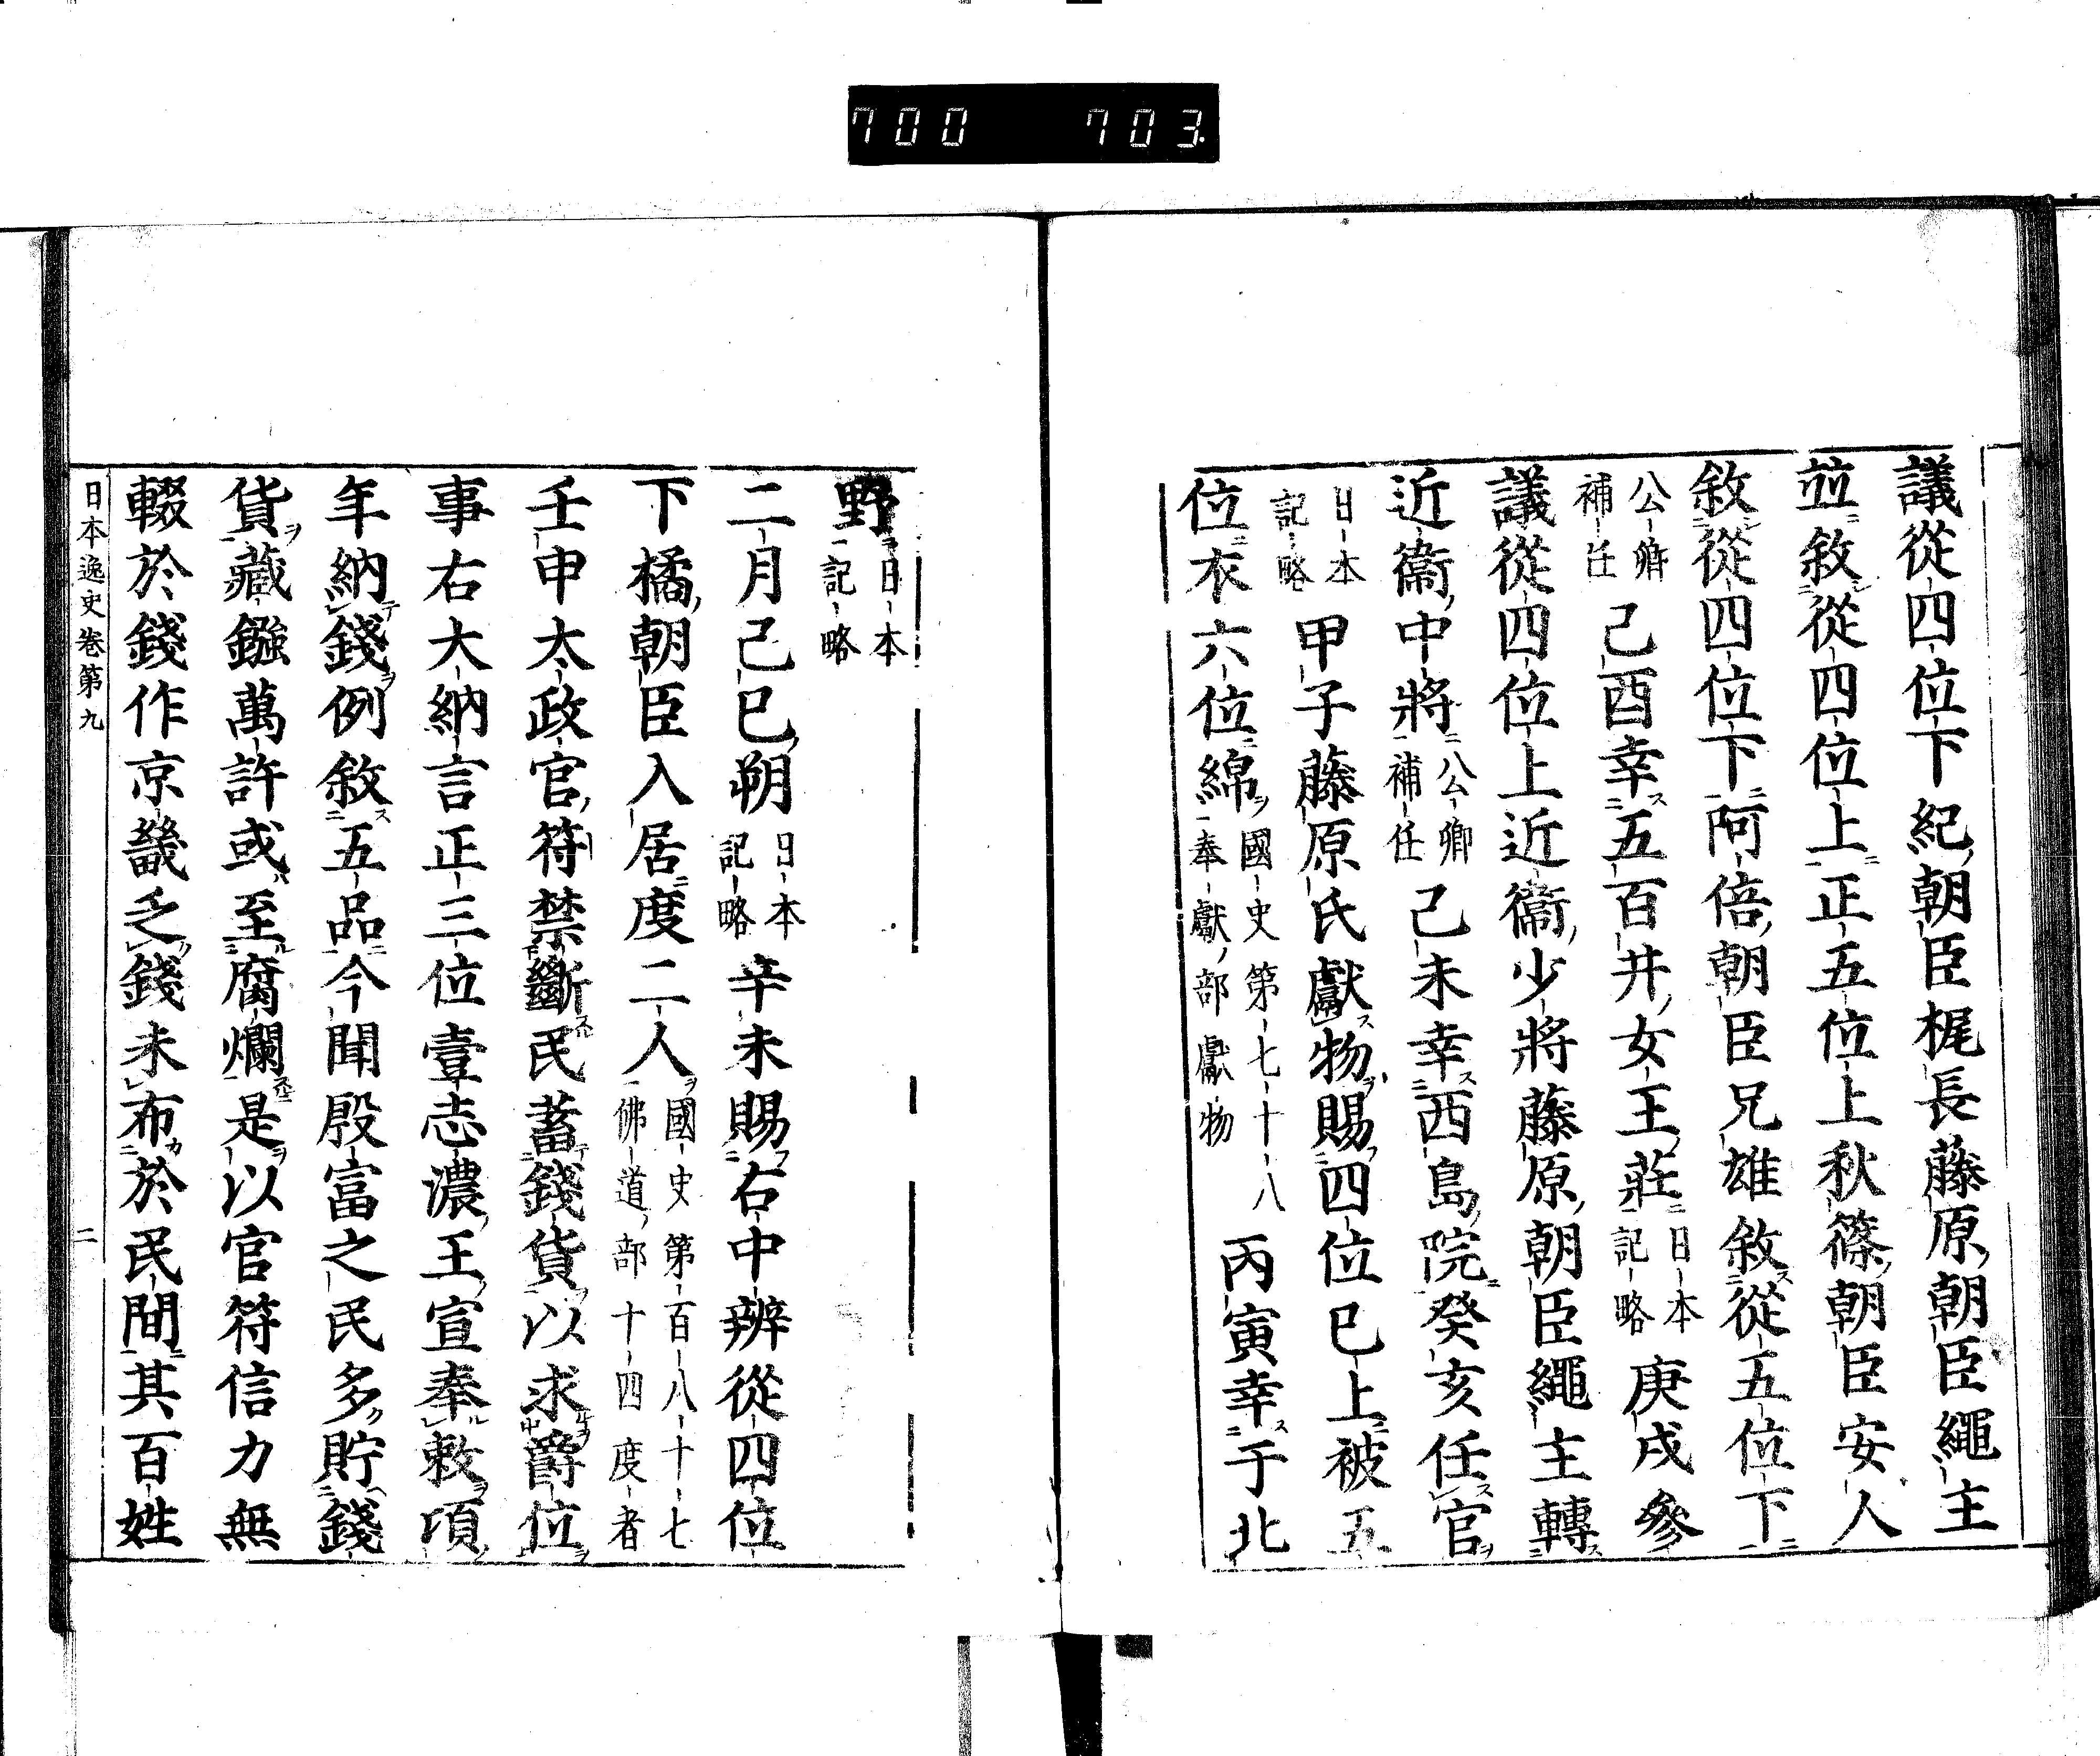 700 703
議從四位下紀朝臣梶長藤原朝臣繩主
並敘從四位上正五位上秋篠朝臣安人
敘從四位下阿倍朝臣兄雄敘從五位下
公卿補任己酉幸五百井女王莊日本記略庚戌參
議從四位上近衞少將藤原朝臣繩主轉
近衞中將公卿補任己未幸西島院癸亥任官
日本記略甲子藤原氏獻物賜四位已上被五
位衣六位綿國史第七十八奉獻部獻物丙寅幸于北
野日本記略
二月己巳朔日本記略辛未賜右中辨從四位
下橘朝臣入居度二人國史第百八十七佛道部十四度者
壬申太政官符禁斷民蓄錢貨以求爵位
事右大納言正三位壹志濃王宣奉敕項
年納錢例敘五品今聞殷富之民多貯錢
貨藏鏹萬許或至腐爛是以官符信力無
輟於錢作京畿乏錢未布於民間其百姓
日本逸史卷第九 二